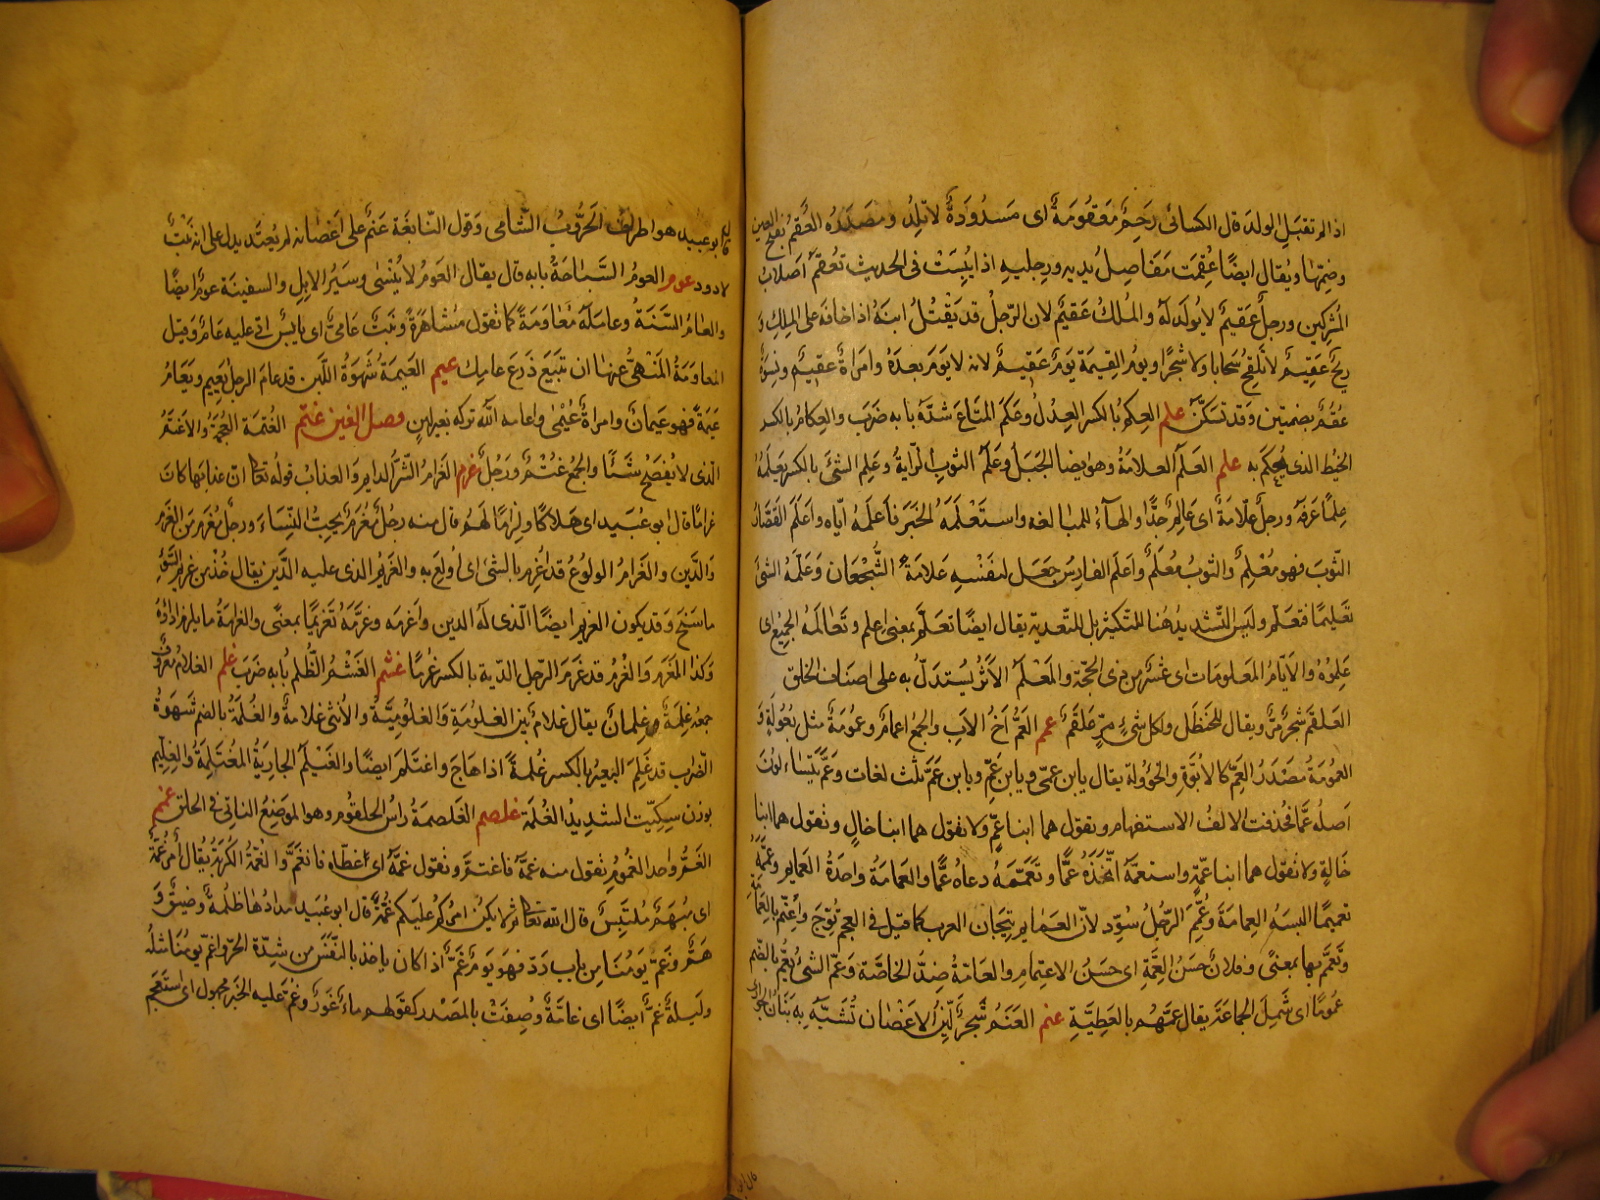 اذا لم تقبل الولد قال الكسائى رَحِمٌ مَعْقُومَةٌ اى مَسْدُودَةٌ لا تَلِدُ ومصْدَرُه العُقْمُ بفتح العين
وضمّها ويُقال ايضًا عُقِمَت مَفَاصِلُ يديه ورجليه اذا يَبِسَتْ فى الحديث تُعْقَمُ اَصْلابُ
المُشْركين ورجلٌ عَقيمٌ لا يُولَد لَهُ والمُلكُ عَقيمٌ لان الرّجلَ قد يَقْتُلُ ابنَهُ اذا خافَهُ على المُلكِ وَ
ريحٌ عَقيمٌ لا تُلْقِحُ سَحابا ولا شجرًا ويومُ القِيمَة يَومٌ عَقِيمٌ لانه لا يَوْمَ بعدَهُ وامرَاةٌ عقيمٌ ونِسْوَةٌ
عُقُمٌ بضمتين وقد تسَكّنُ علم العِكمُ بالكسر العِدْلُ وعَكَمَ المتَاعَ شدّهُ بابه ضَرَبَ والعِكامُ بالكسر
الخَيْط الذى يُعْكَم به علم العَلَمُ العلامَةُ وهو ايضا الجَبَلُ وعَلَمُ الثوبِ الرّايةُ وعَلِمَ الشئَ بالكسر يَعْلَمُهُ
عِلمًا عَرَفَهُ ورجلٌ علّامَةٌ اى عَالِمٌ جدًّا والهآءُ للمبالغه واستَعْلَمَهُ الخبَرَ فاَعلَمَهُ ايّاه واَعلَمَ القَصّارُ
الثّوبَ فهو مُعْلِمٌ والثوبُ مُعْلَمٌ واَعلَمَ الفارِسُ جَعَلَ لنَفْسِهِ عَلامَةُ الشُّجْعَان وَعَلّمَهُ الشئَ
تَعليمًا فتعلّم وليسَ التّشديدُ هُنا للتكثير بل للتعدية يقال ايضًا تعَلّم بمعنى اعلم وتَعَالَمَهُ الجميعُ اى
عَلِمُوهُ والاَيّامُ المَعلوماتُ عَشْرٌ من ذى الحجّة والمَعْلَمُ الاَثَرُ يُستَدلّ به على اصناف الخلق
العَلقَم شجرٌ مُرٌّ ويقال للحَنظَل ولكل شئٍ مرٍّ عَلقَمٌ عمم العَمُّ اَخُ الاَبِ والجمعُ اعمامٌ وعمُومَةٌ مثل بُعُولَةٍ وَ
العمُومَةُ مَصْدَرُ العَمِّ كالابُوّةِ والخؤولة يقال يابن عمّى ويابن عَمِّ ويابن عَمَّ ثلث لغات وعَمَّ يَتساءلُونَ
اَصلُه عَمّا فحُذفت الالفُ للاستفهام وتقول هما ابنا عَمٍّ ولا تقول هما ابنا خالٍ وتقول هما ابنا
خَالةٍ ولا تقول هما ابنا عَمَّةٍ واستعمّهُ اتَّخَذَهُ عَمًّا وتَعَمّمَهُ دعاهُ عَمًّا والعمَامَةُ واحدَةُ العمايم وعمّمهُ
تعميمًا البسَهُ العِمامَةَ وعُمِّمَ الرّجُلُ سُوِّدَ لانّ العَمايم تِيجَان العرب كما قيل فى العجم تُوِّجَ واعتم بالعِمَامَة
وتَعمّمَ بها بمعنى وفلانٌ حَسَنُ العِمَّةِ اى حَسَنُ الاعتِمَامِ والعَامّةُ ضدّ الخاصّة وعَمّ الشئُ يَعُمُّ بالضّم
عُمومًا اى شَمِلَ الجماعَةَ يقال عمّهُم بالعَطِيَّةِ عنم العَنَمُ شَجَرٌ لَيِّنُ الاَغصَان تُشَبَّهُ بِهِ بَنَانُ الجوارى
قال ابو عبيد هو اطراف الخَرُّوبُ الشّامى وَقول النّابغَة عَنَمٌ على اَغصَانه لم يُعقَد يدل على انه نَبْتٌ
لا دود عوم العومُ السِّبَاحَةُ بابه قال يقال العَومُ لا يُنْسٰى وسَيْرُ الابِلِ والسفينَة عومٌ ايضًا
والعَامُ السَّنَةُ وعامَلَهُ مُعَاوَمَةً كما تقول مُشَاهَرَةً ونَبْتٌ عَامِىٌّ اى يابِسٌ اتى عليه عَامٌ وقيل
المعاوَمَةُ المَنْهِىُّ عنها ان تَبيعَ زَرعَ عامِك عيم العَيمَةُ شَهْوَةُ اللَّبن قد عامَ الرجلُ يَعِيم ويَعَامُ
عَيمَةً فهو عَيمَانٌ وامراةٌ عَيْمٰى واعامه اللّٰه تركه بغير لبن فصل الغين غتم الغُتْمَة العُجْمَةُ والاَغتَمُ
الّذى لا يُفصحُ شَيْئًا والجمعُ غُتْمٌ ورَجُلٌ غرم الغَرَامُ الشّرُّ الدايم والعذابُ قوله تعا انّ عذابها كانَ
غرامًا قال ابو عُبَيد اى هَلاكًا ولِزَامًا لَهُم قال منه رجُلٌ مُغْرَمٌ يحبّ النِّسَاءَ ورجُلٌ مُغْرَم من الغُرمِ
وَالدَّين والغَرَامُ الولوعُ قد اُغرِم بالشئ اى اُولِعَ بِهِ والغَريم الذى عليه الدَّين يقال خُذْ من غريم السَّوءِ
ما سَنَحَ وقد يكون الغريم ايضًا الّذى لَهُ الدين واَغرَمه وغرَّمَهُ تَغريمًا بمعنًى والغَرامَةُ ما يلزم اداؤهُ
وكذا المَغرَم وَالغُرْمُ قد غَرِمَ الرّجل الدّية بالكسر غُرمًا غشم الغَشْمُ الظُلم بابه ضرَبَ غلم الغلامُ معروفٌ
جمعُه غِلمَةٌ وغِلمَانٌ يقال غلامٌ بَيّن الغلُومَةِ وَالغلُومِيَّةُ والاُنثى غلامةٌ والغُلمَةُ بالضم شَهوَةُ
الضّراب قد غَلِمَ البَعيرُ بالكسر غُلمَةً اذا هاجَ واغتَلَم ايضًا والغَيْلَم الجاريَةُ المُغتَلِمَةُ والغِلِّيم
بوزن سِكّيت الشديدُ الغُلمَة غلصم الغَلصَمَةُ راسُ الحلقُوم وهو الموضِعُ الناتى فى الحلق غمم
الغمُّ واحد الغُمُومِ تقول منه غَمَّهُ فاغتَمَّ وتقول غمَّهُ اى غطّاه فانغَمَّ وَالغُمَّةُ الكُرْبَةُ يُقال اَمرٌ غُمَّةٌ
اى مُبْهَمٌ مُلتَبِسٌ قال اللّٰه تعا ثم لا يكن امرُكم عليكم غُمَّةً قال ابو عُبيد مدادُها ظلمةٌ وضيقٌ وَ
هَمٌّ وغَمَّ يَومُنَا من باب رَدّ فهو يَومٌ غَمٌّ اذا كان ياخذ بالنَّفَس من شِدّة الحر واغَمَّ يومُنَا مثلُه
ولَيلةٌ غَمٌّ ايضًا اى غامّةٌ وُصِفَتْ بالمصْدَر كقَولهم ماءٌ غَورٌ وغُمَّ عَلَيه الخَبرُ مجهول اى استَعجَمَ